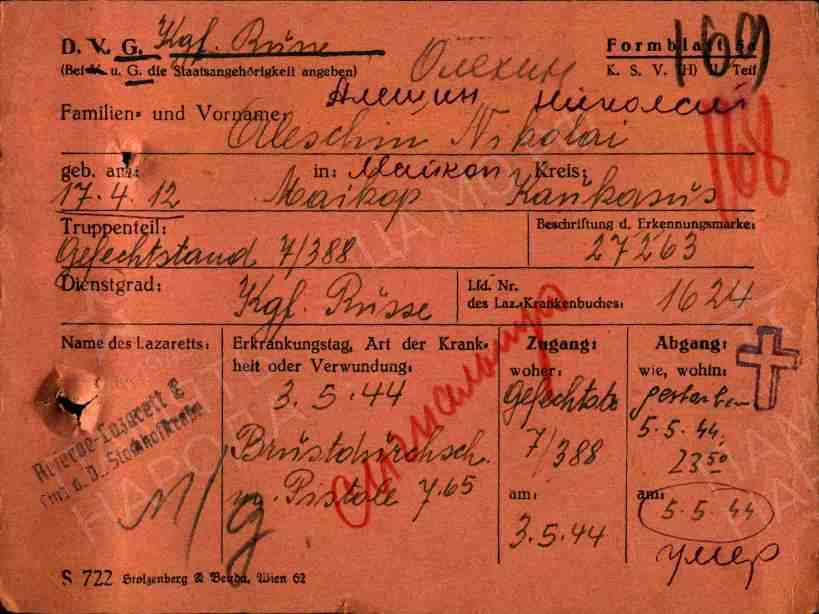 D. V. G. Kgf. Russe
Formblatt 5c
(Bei V. u. G. die Staatsangehörigkeit angeben)
K. S. V. (H) II Teil
169
Олехин
Familien- und Vorname:
Алешин Николай
Aleschin Nikolai
168
geb. am: in: Майкоп Kreis:
17.4.12 Maikop Kaukasus
Truppenteil:
Beschriftung d. Erkennungsmarke:
Gefechtstand 7/388
27263
Dienstgrad:
Kgf. Russe
Lfd. Nr.
des Laz.-Krankenbuches:
1624
Name des Lazaretts:
Reserve-Lazarett
Erkrankungstag, Art der Krank-
heit oder Verwundung:
3.5.44
Brustdurchsch.
m. Pistole 7,65
Zugang:
woher:
Gefechtstd
7/388
am:
3.5.44
Abgang:
wie, wohin:
gestorben
5.5.44,
23⁵⁰
am:
5.5.44
умер
S 722 Stolzenberg & Benda, Wien 62